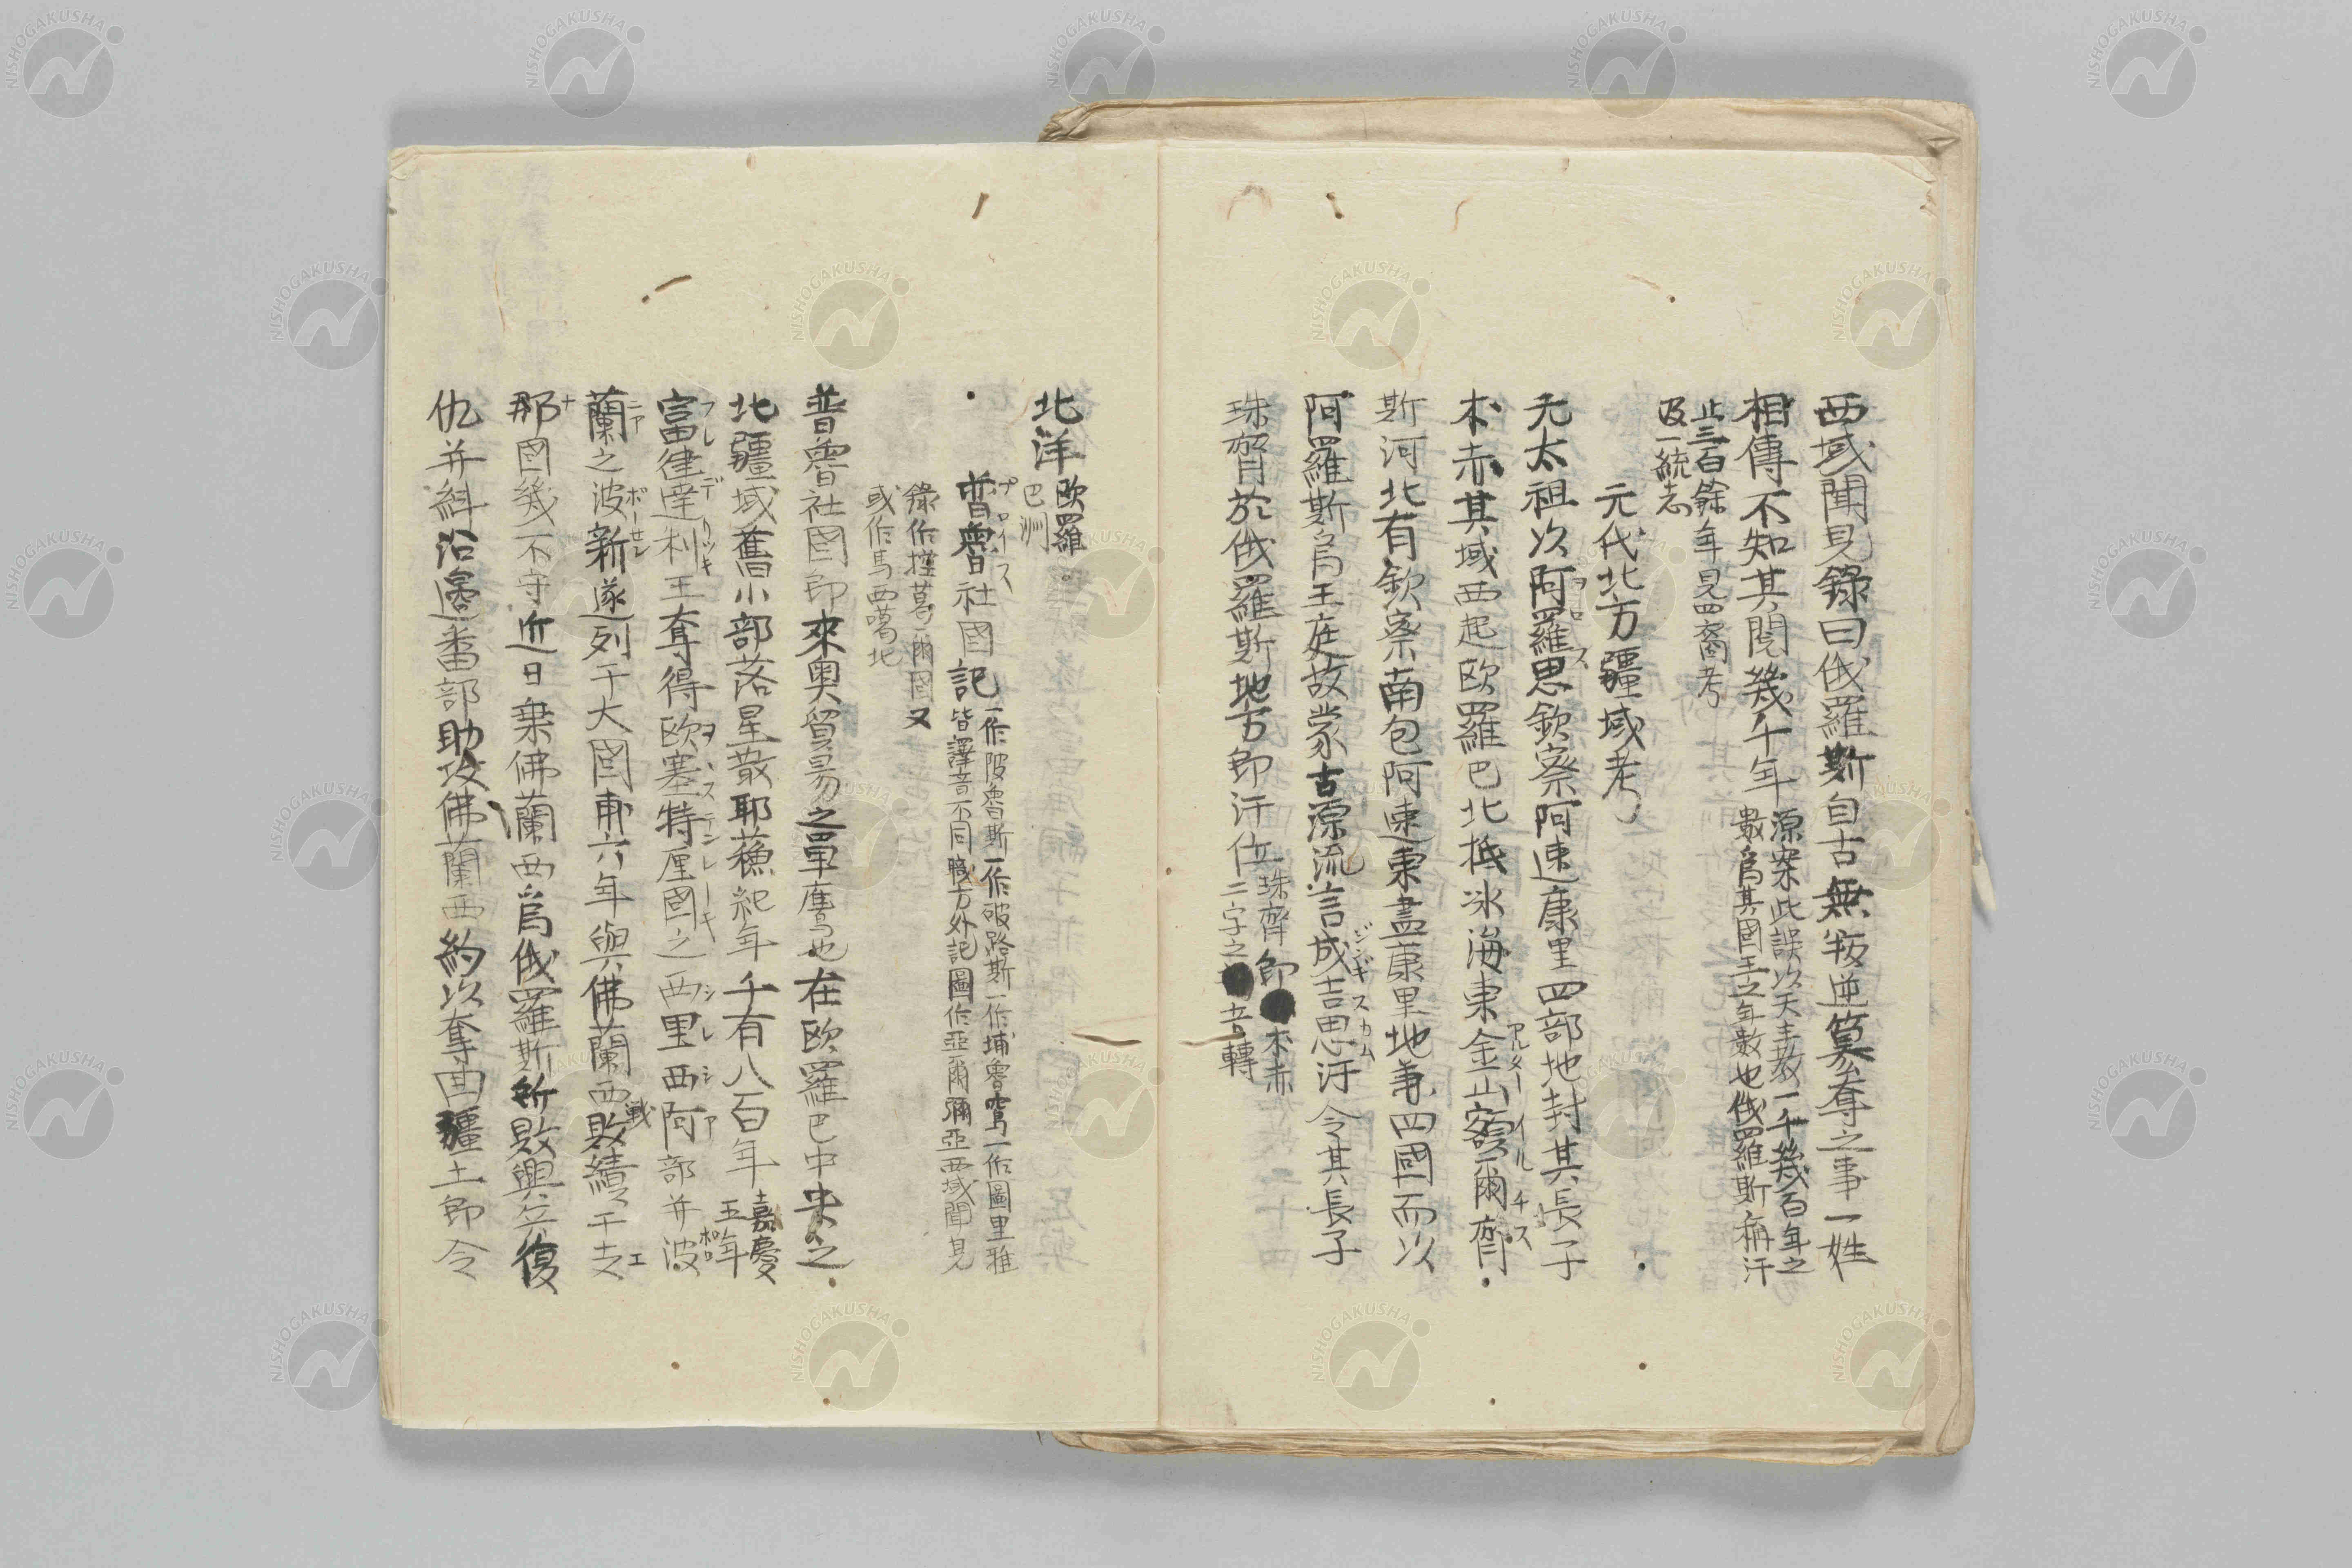 西域聞見錄曰俄羅斯自古無叛逆簒奪之事一姓
相傳不知其閱幾千年
源案此誤以天主教一千幾百年之
數爲其國王之年數也俄羅斯稱汗
止三百餘年見四裔考
及一統志
元代北方疆域考
元太祖以阿羅思欽察阿速康里四部地封其長子
ヲロス
朩赤其域西起欧羅巴北抵冰海東金山額爾齊
アルターイルチス
斯河北有欽察南包阿速東盡康里地兼四國而以
阿羅斯爲王庭故蒙古源流言成吉思汗令其長子
ジンギスカム
珠齊於俄羅斯地方即汗位
珠齊即朩赤
二字之音轉
北洋
欧羅
巴洲
普魯社國記
プロイス
一作陂魯斯一作破路斯一作埔魯寫一作圖里雅
皆譯音不同職方外記圖作亞爾彌亞西域聞見
錄作控葛爾國又
或作馬西噶北
普魯社國即來奧貿易之單鷹也在欧羅巴中央之
北疆域舊小部落星散耶蘓紀年千有八百年
嘉慶
五年
富律達利王奪得欧塞特厘國之西里西阿部并波
フレデリッキ
ヲーステンレーキ
シレシア
ポロ
蘭之波新遂列于大國甫六年與佛蘭西戰敗績于支
ニア
ポーセン
エ
那國幾不守近日乗佛蘭西爲俄羅斯所敗興兵復
ナ
仇并糾沿邊番部助攻佛蘭西約以奪囬疆土即令
NISHOGAKUSHA